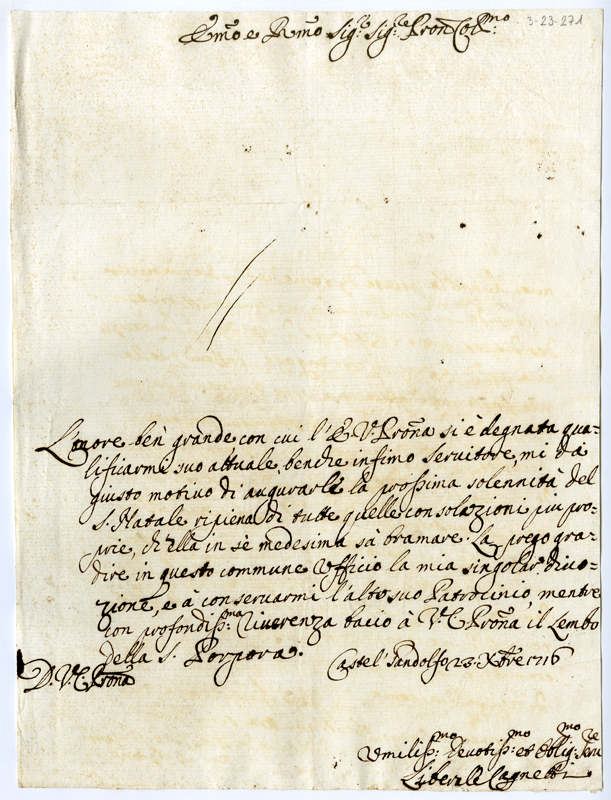 3-23-271
Emo e Rmo Sig.r Sig.re Pron Col.mo
L'onore ben grande con cui l'E V. Prona si è degnata qua-
lificarmi suo attuale, benche infimo servitore, mi dà
giusto motivo di augurarle la prossima solennità del
S. Natale ripiena di tutte quelle consolazioni piu pro-
prie, ch'ella in sè medesima sà bramare. La prego gra-
dire in questo commune Ufficio la mia singolar divo-
zione, e à conservarmi l'alto suo Patrocinio, mentre
con profondiss.ma Riverenza bacio à V. E. Prona il Lembo
della S. Porpora.
Castel Gandolfo 23. Xbre 1716
D. V. E. Prona
Umiliss.mo Devotiss.mo et Oblig.mo
Liberale Cagnetti